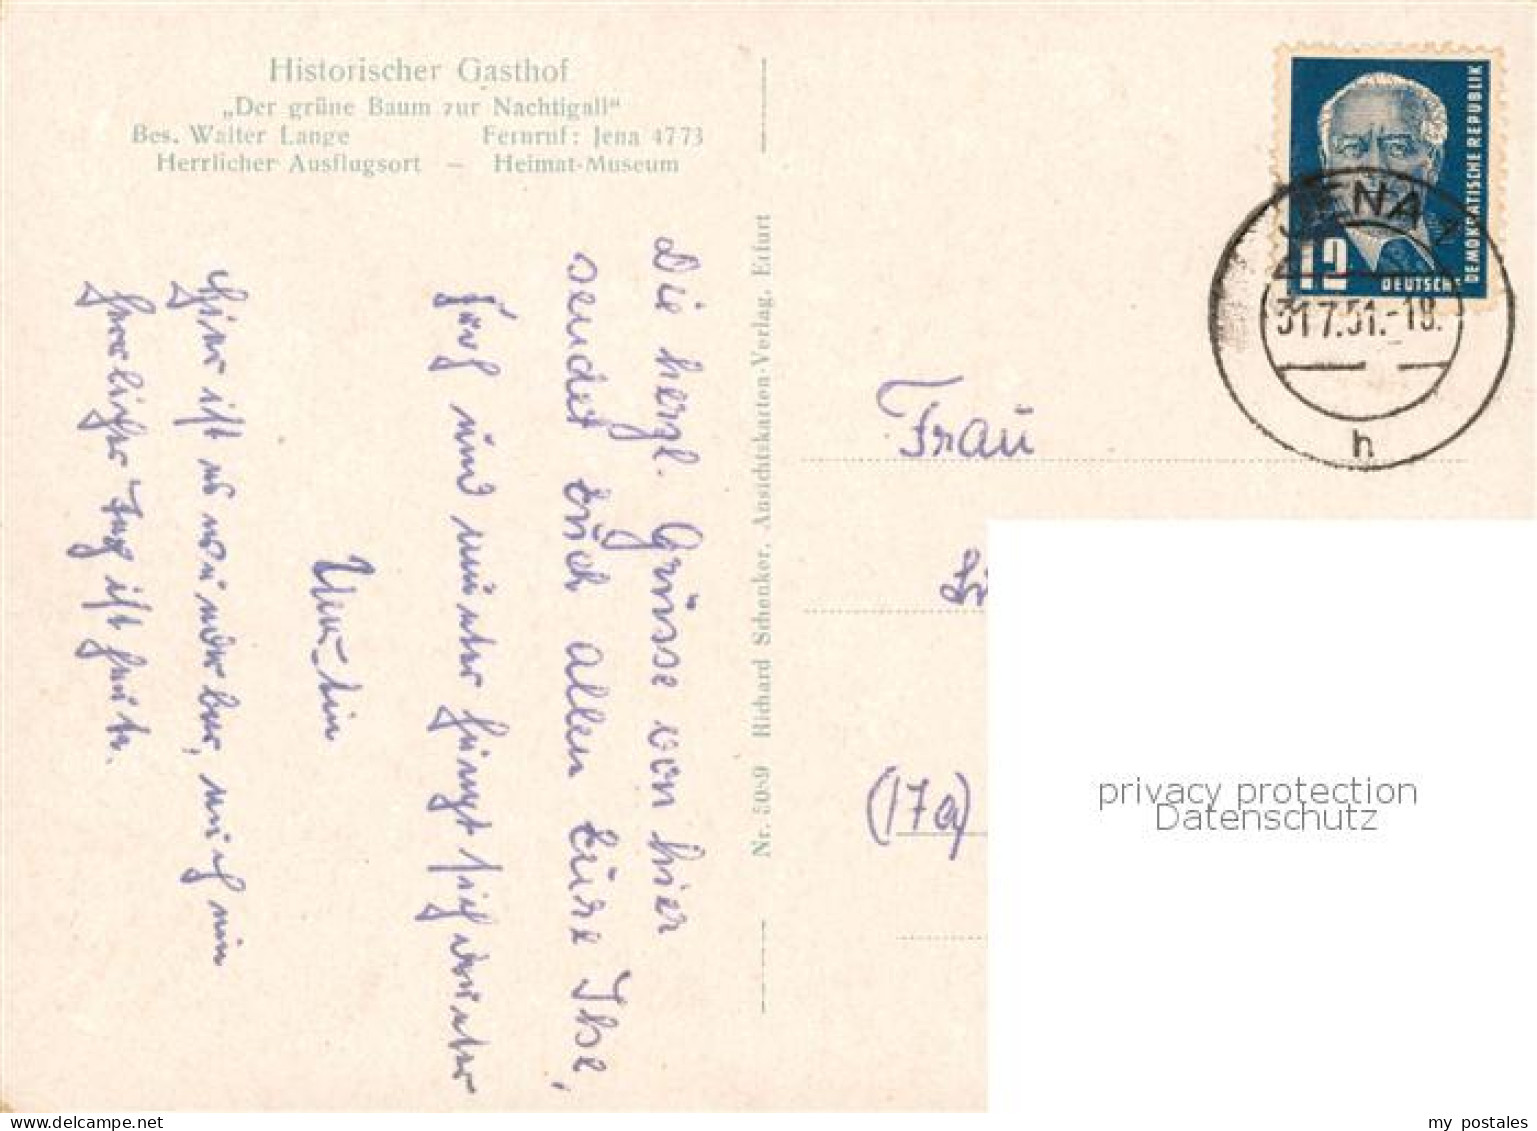 Historischer Gasthof
„Der grüne Baum zur Nachtigall“
Bes. Walter Lange Fernruf: Jena 4773
Herrlicher Ausflugsort — Heimat-Museum
Die herzl. Grüsse von hier
sendet Euch allen Eure Ilse,
und munter hängt sich darunter
Hier ist es wunderbar, auch ein
herrlicher Tag ist heute.
Nr. 5089 Richard Schenker, Ansichtskarten-Verlag, Erfurt
DEUTSCHE DEMOKRATISCHE REPUBLIK
12
JENA
31.7.51.-18.
h
Frau
(17a)
privacy protection
Datenschutz
my postales